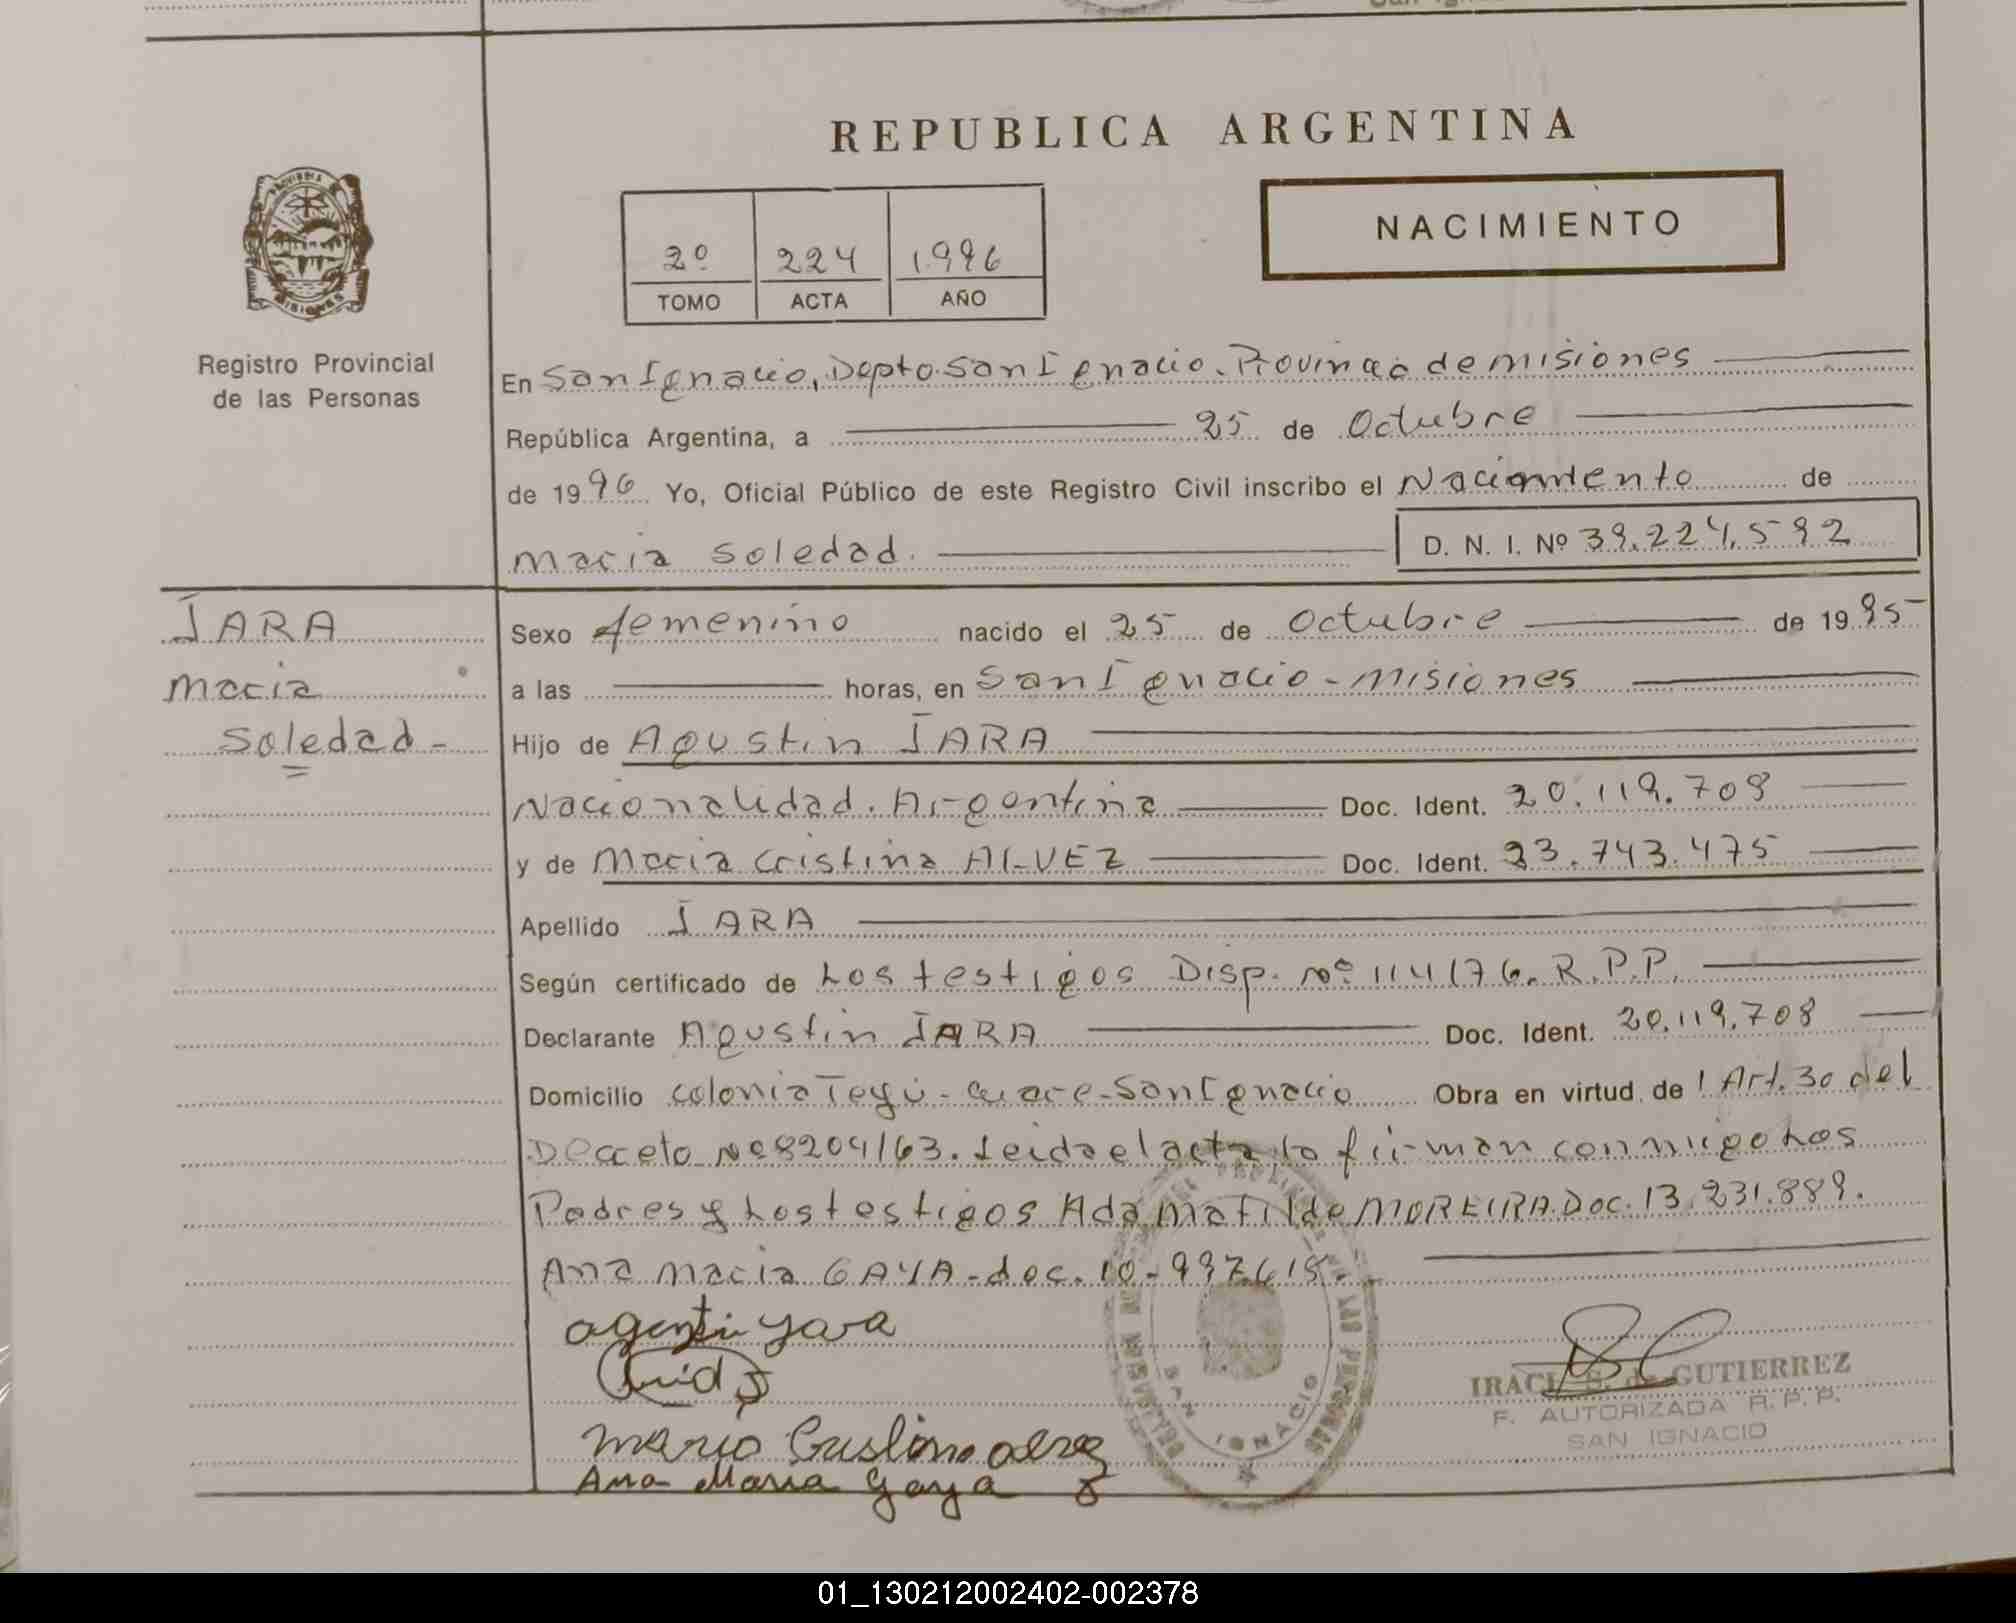 REPUBLICA ARGENTINA
NACIMIENTO
2º 224 1996
TOMO ACTA AÑO
Registro Provincial
de las Personas
En San Ignacio, Depto San Ignacio. Provincia de misiones
República Argentina, a 25 de Octubre
de 1996 Yo, Oficial Público de este Registro Civil inscribo el Nacimiento de
maria Soledad. D. N. I. Nº 39.224.592
JARA
maria
Soledad -
Sexo femenino nacido el 25 de Octubre de 1995
a las horas, en San Ignacio - misiones
Hijo de Agustin JARA
Nacionalidad. Argentina Doc. Ident. 20.119.708
y de maria cristina ALVEZ Doc. Ident. 23.743.475
Apellido JARA
Según certificado de Los testigos Disp. Nº 114/76. R.P.P.
Declarante Agustin JARA Doc. Ident. 20.119.708
Domicilio colonia Teyú-cuare-San Ignacio Obra en virtud de l Art. 30 del
Decreto Nº 8204/63. Leida el acta, la firman conmigo Los
Padres y Los testigos Ada Matilde MOREIRA Doc. 13.231.889.
Ana maria GAYA - doc. 10-997.615.
SAN IGNACIO
Ana Maria Gaya
GUTIERREZ
F. AUTORIZADA R. P. P.
SAN IGNACIO
01_130212002402-002378